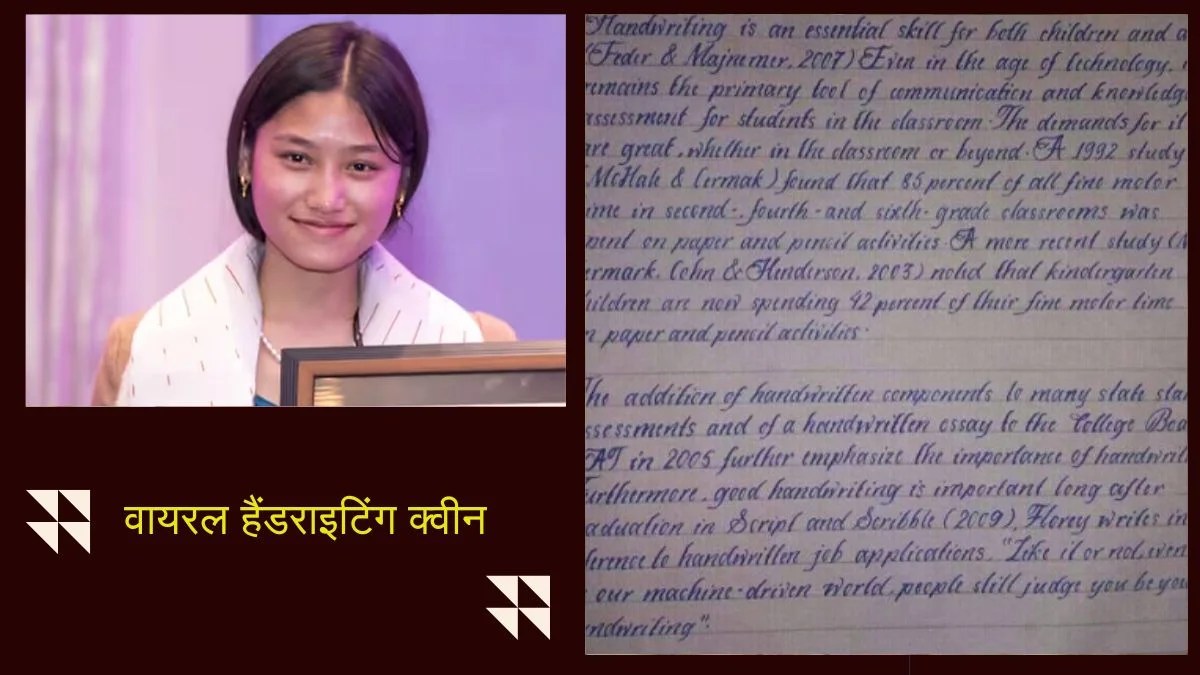 वायरल हैंडराइटिंग क्वीन
Handwriting is an essential skill for both children and a
(Feder & Majnemer, 2007) Even in the age of technology,
remains the primary tool of communication and knowledge
assessment for students in the classroom. The demands for it
are great, whether in the classroom or beyond. A 1992 study
McHale & Cermak) found that 85 percent of all fine motor
time in second-, fourth-and sixth-grade classrooms was
pent on paper and pencil activities. A more recent study (M
ermark, Cohn & Henderson, 2003) noted that kindergarten
hildren are now spending 42 percent of their fine motor time
n paper and pencil activities.
The addition of handwritten components to many state stan
ssessments and of a handwritten essay to the College Boa
AT in 2005 further emphasize the importance of handwrit
urthermore, good handwriting is important long after
aduation in Script and Scribble (2009), Florey writes in
ference to handwritten job applications, "Like it or not, even
our machine-driven world, people still judge you be you
ndwriting".